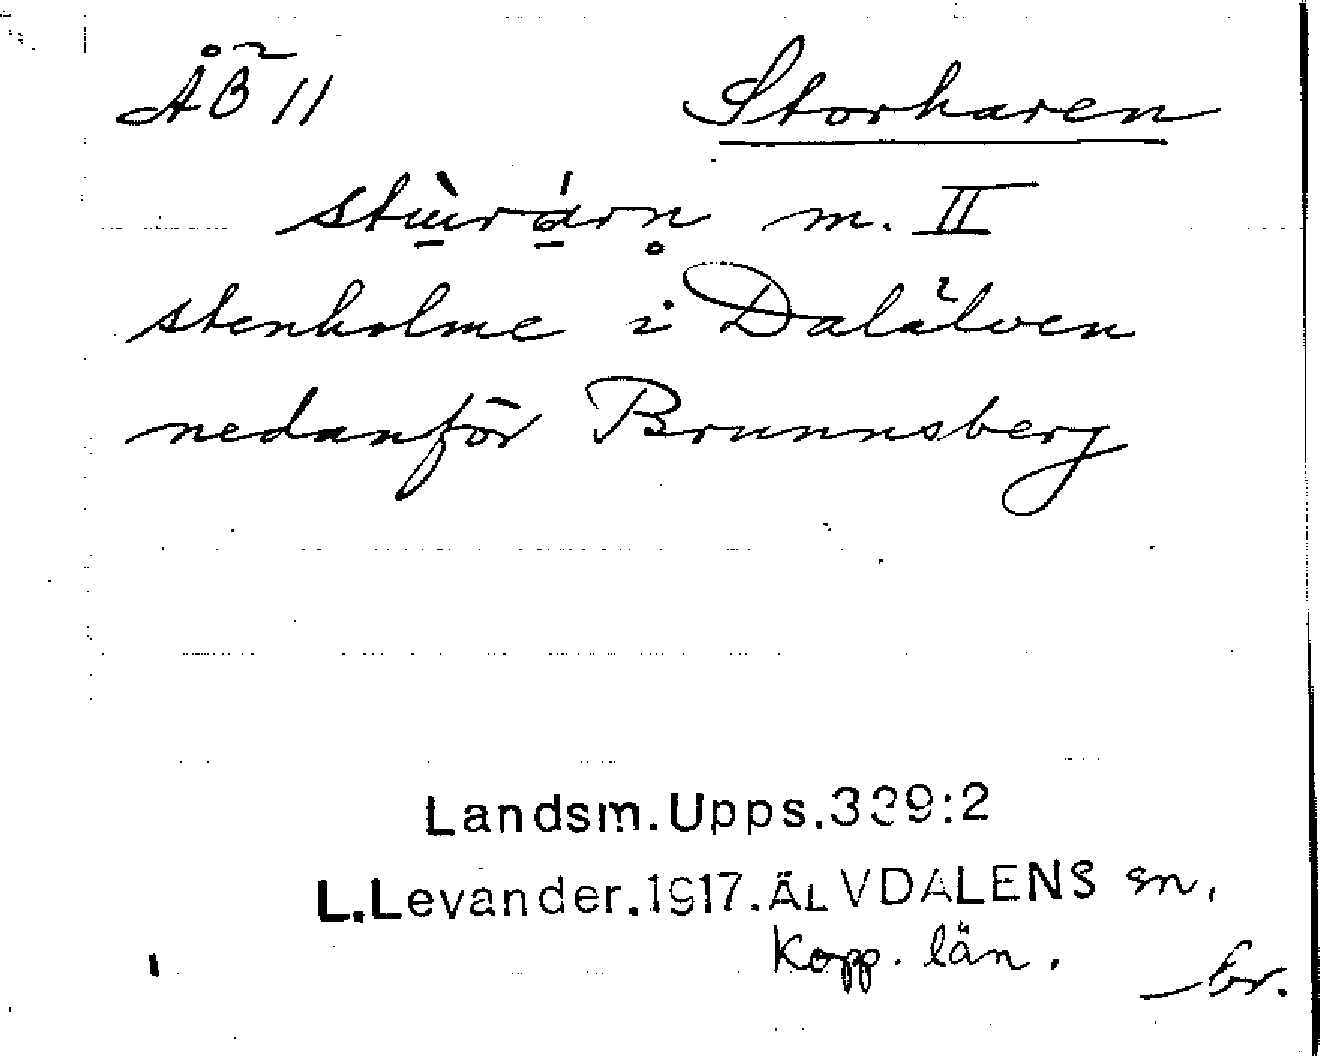 ÅB̃ 11 Storharen
stu̠̇̀rá̠rn̥ m. II
stenholme i Dalälven
nedanför Brunnsberg
Landsm.Upps.339:2
L.Levander.1917.ÄLVDALENS sn.
Kopp. län.
Er.